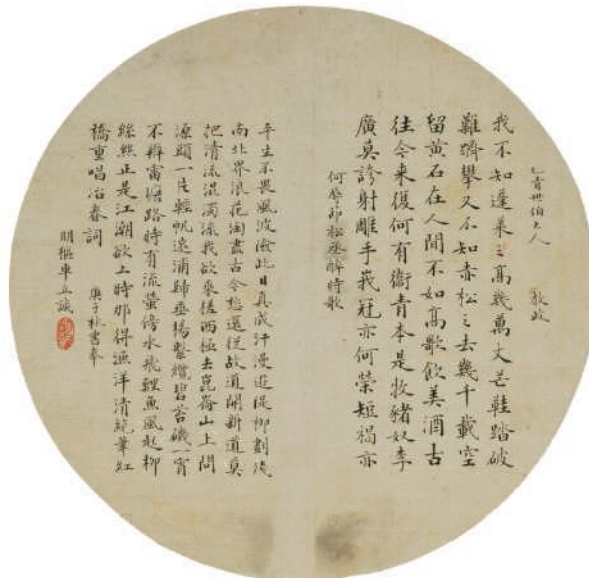 乙青世伯大人 教政
我不知蓬莱之高幾萬丈芒鞋踏破
難躋攀又不知赤松之去幾千載空
留黄石在人間不如高歌飲美酒古
往今来復何有衛青本是牧豬奴李
廣莫誇射雕手峩冠亦何榮短褐亦
何辱 節松丞醉時歌
平生不畏風波險此日真成汗漫遊堤柳劃殘
南北界浪花淘盡古今愁還從故道開新道莫
把清流混濁流我欲乘槎西極去崑崙山上問
源頭一片輕帆遠浦歸垂楊繫纜碧苔磯一宵
不辨雷塘路時有流螢傍水飛鯉魚風起柳
絲絲正是江潮欲上時那得漁洋清絶筆紅
橋重唱冶春詞 庚子秋書奉
明樞車立誠